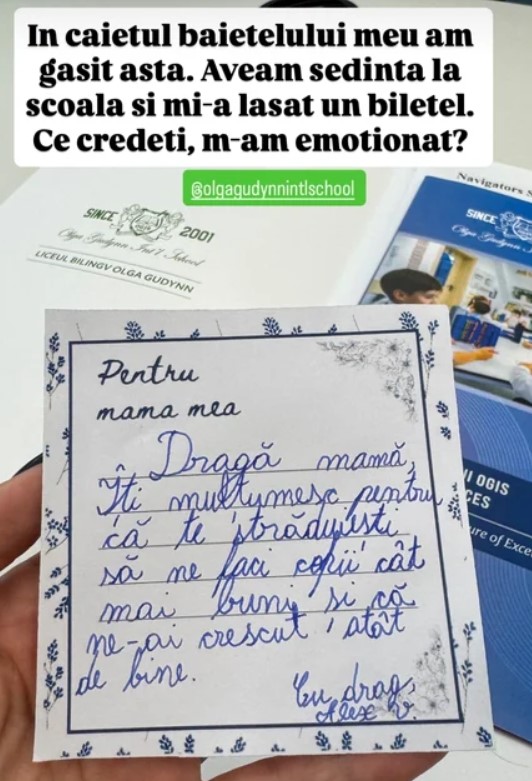 In caietul baietelului meu am
gasit asta. Aveam sedinta la
scoala si mi-a lasat un biletel.
Ce credeti, m-am emotionat?
@olgagudynnintlschool
SINCE 2001
Olga Gudynn Int'l School
LICEUL BILINGV OLGA GUDYNN
Navigators S
SINCE
Olga Gudynn Int'l
OGIS
CES
ure of Exce
Pentru
mama mea
Dragă mamă,
Îți mulțumesc pentru
că te străduiești
să ne faci copii cât
mai buni și că
ne-ai crescut atât
de bine.
Cu drag,
Alex V.